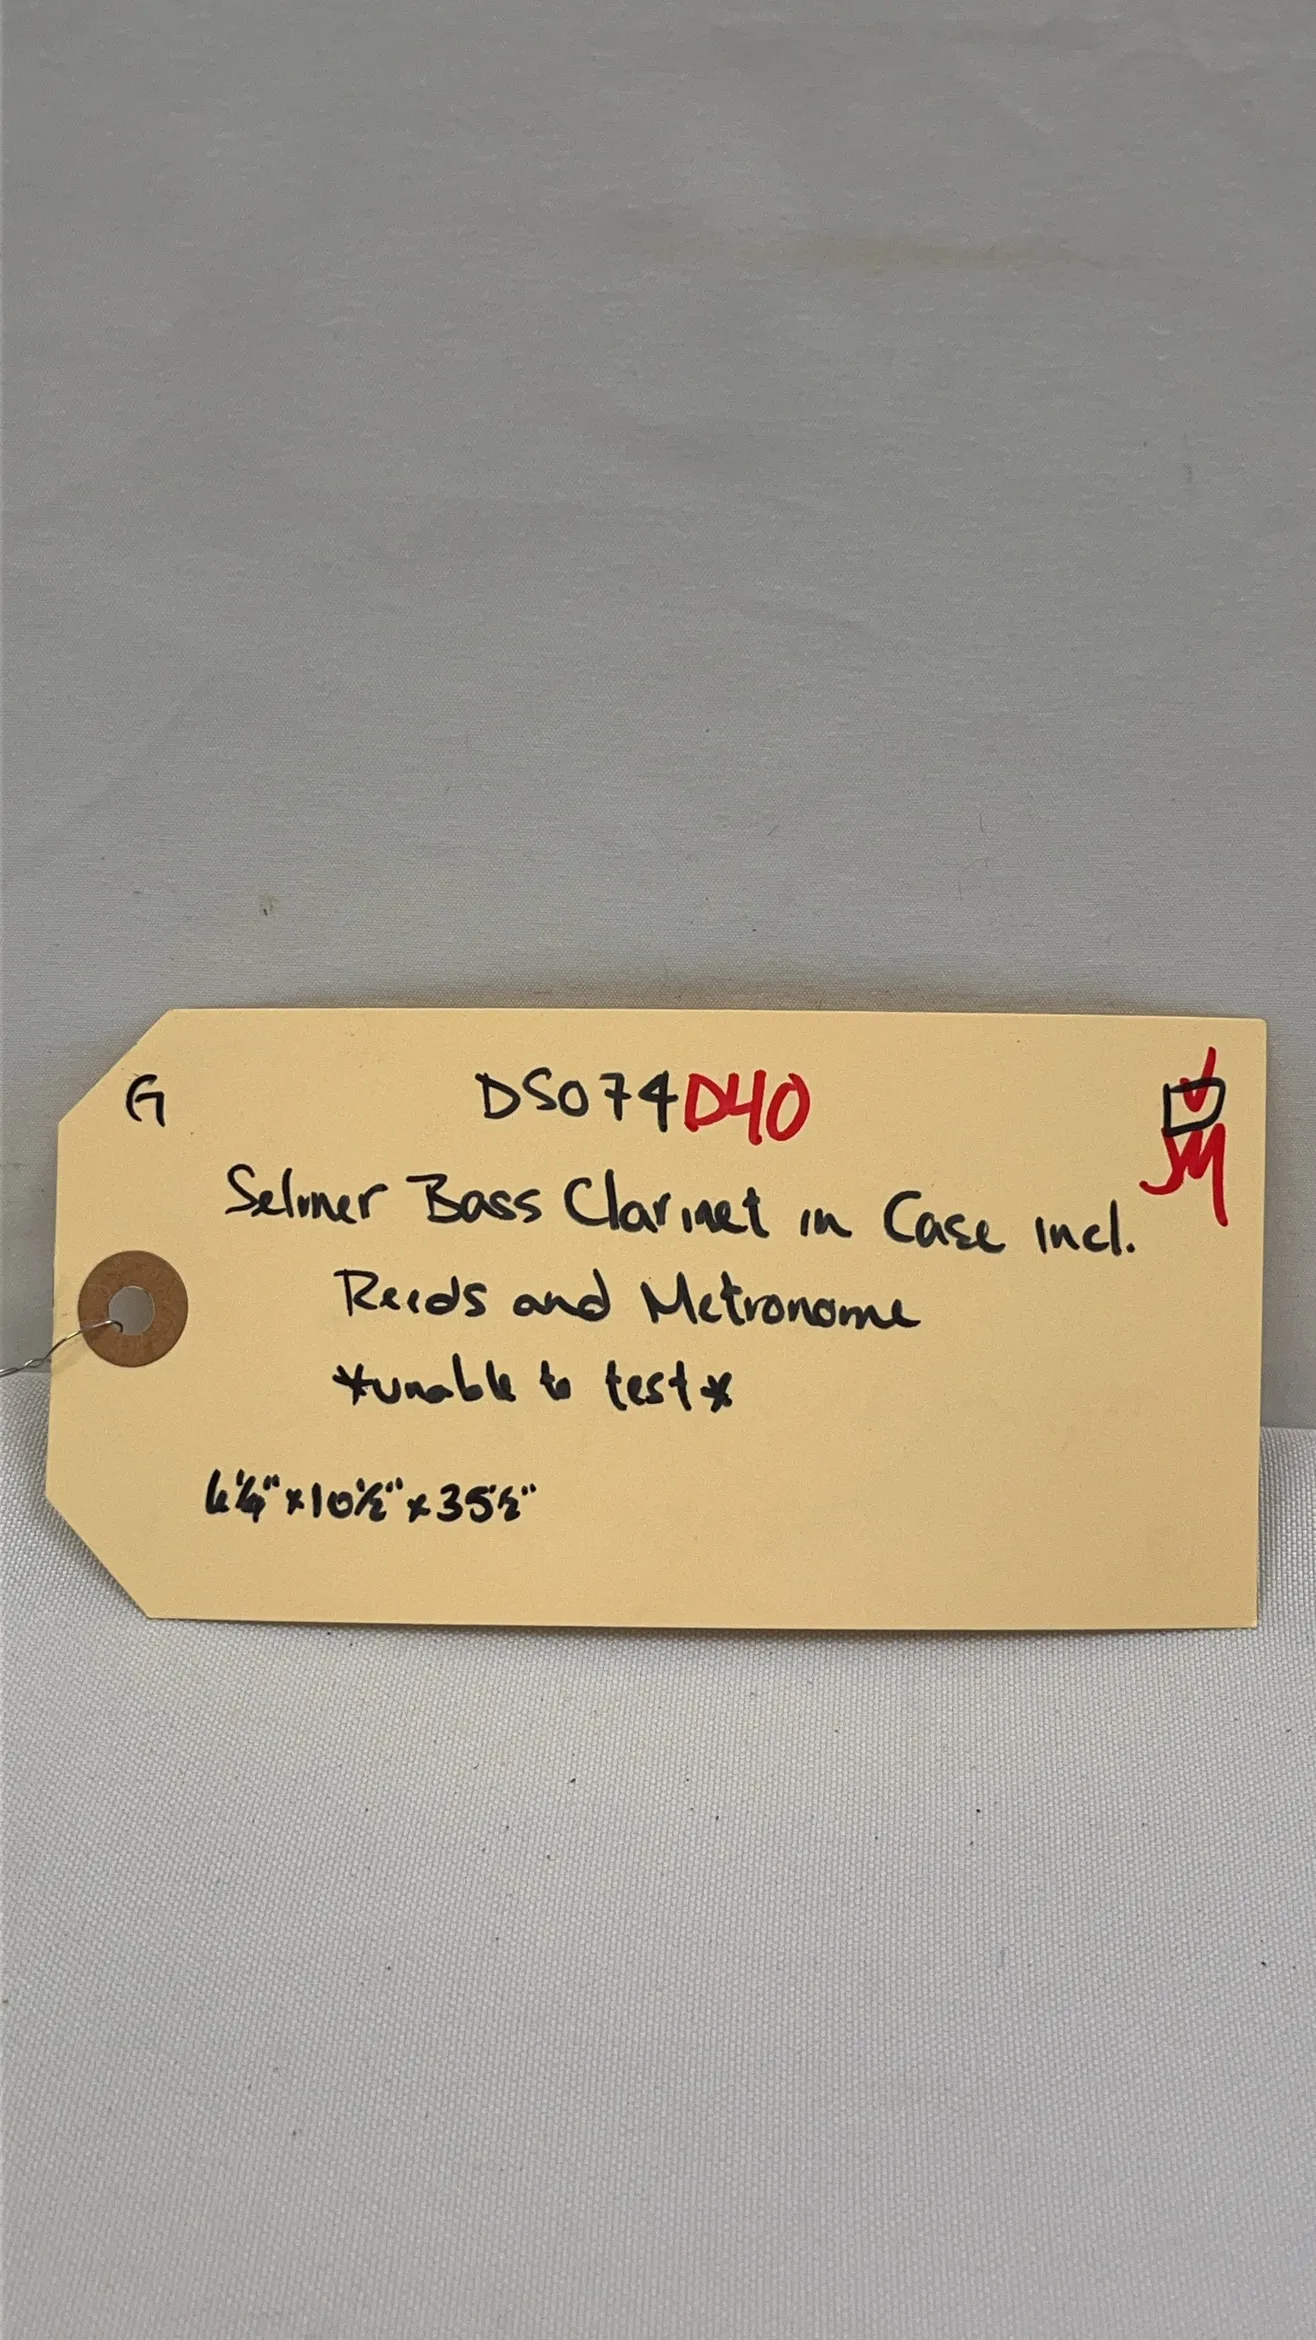 G
DS074D40
JM
Selmer Bass Clarinet in Case incl.
Reeds and Metronome
*unable to test*
6¼" x 10½" x 35½"